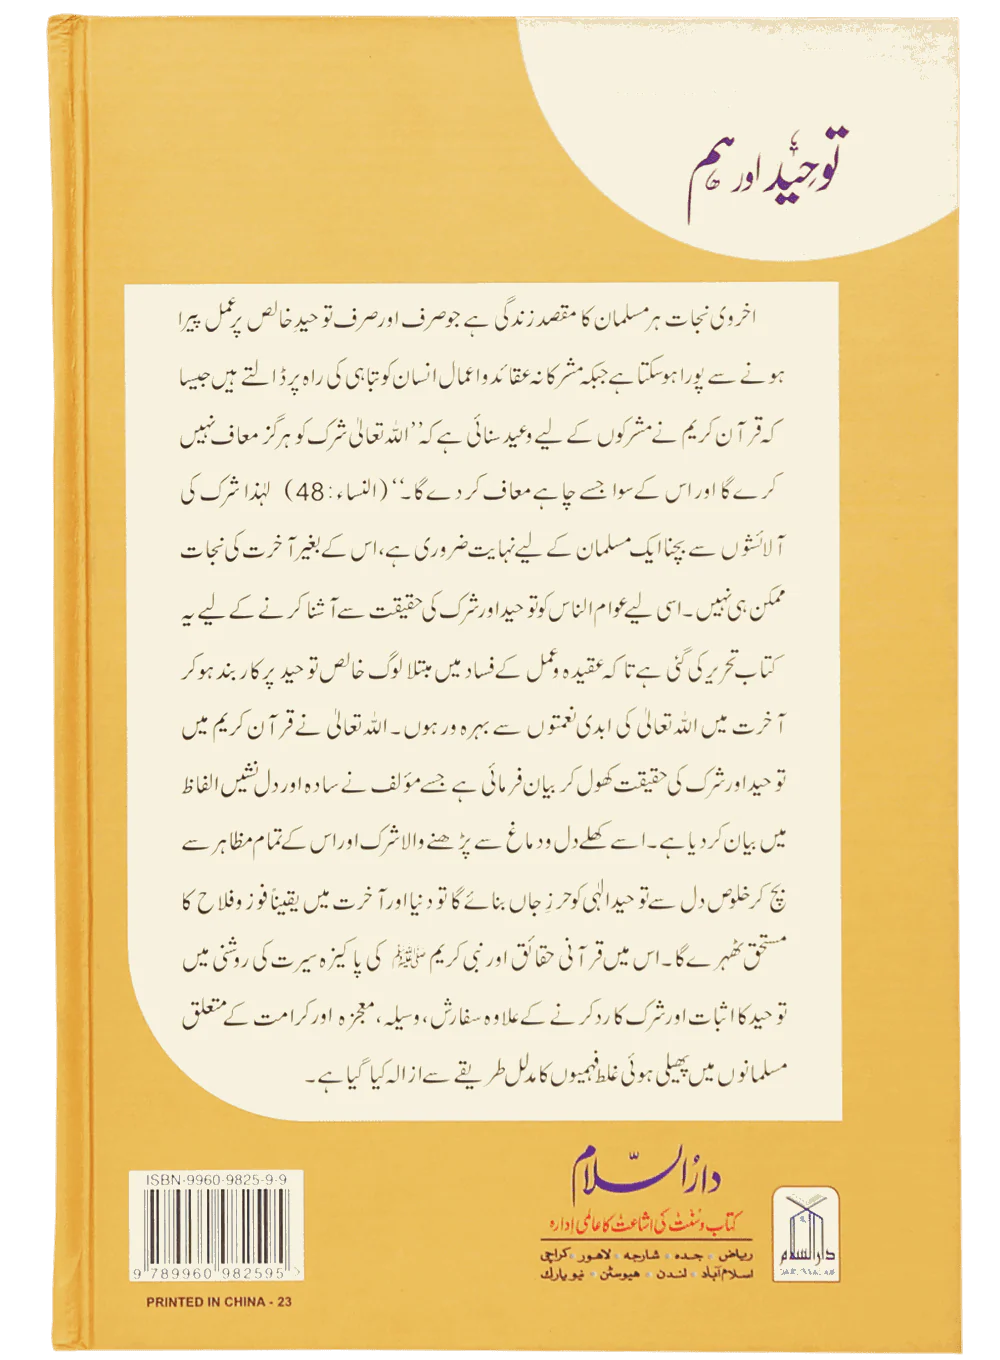 توحید اور ہم
اخروی نجات ہر مسلمان کا مقصد زندگی ہے جو صرف اور صرف توحیدِ خالص پر عمل پیرا
ہونے سے پورا ہوسکتا ہے جبکہ مشرکانہ عقائد و اعمال انسان کو تباہی کی راہ پر ڈالتے ہیں جیسا
کہ قرآن کریم نے مشرکوں کے لیے وعید سنائی ہے کہ ’’اللہ تعالیٰ شرک کو ہرگز معاف نہیں
کرے گا اور اس کے سوا جسے چاہے معاف کر دے گا۔‘‘ (النساء:48) لہٰذا شرک کی
آلائشوں سے بچنا ایک مسلمان کے لیے نہایت ضروری ہے، اس کے بغیر آخرت کی نجات
ممکن ہی نہیں۔ اسی لیے عوام الناس کو توحید اور شرک کی حقیقت سے آشنا کرنے کے لیے یہ
کتاب تحریر کی گئی ہے تاکہ عقیدہ و عمل کے فساد میں مبتلا لوگ خالص توحید پر کاربند ہوکر
آخرت میں اللہ تعالیٰ کی ابدی نعمتوں سے بہرہ ور ہوں۔ اللہ تعالیٰ نے قرآن کریم میں
توحید اور شرک کی حقیقت کھول کر بیان فرمائی ہے جسے مؤلف نے سادہ اور دل نشیں الفاظ
میں بیان کردیا ہے۔ اسے کھلے دل و دماغ سے پڑھنے والا شرک اور اس کے تمام مظاہر سے
بچ کر خلوص دل سے توحید الٰہی کو حرزِ جاں بنائے گا تو دنیا اور آخرت میں یقیناً فوز و فلاح کا
مستحق ٹھہرے گا۔ اس میں قرآنی حقائق اور نبی کریم ﷺ کی پاکیزہ سیرت کی روشنی میں
توحید کا اثبات اور شرک کا رد کرنے کے علاوہ سفارش، وسیلہ، معجزہ اور کرامت کے متعلق
مسلمانوں میں پھیلی ہوئی غلط فہمیوں کا مدلل طریقے سے ازالہ کیا گیا ہے۔
دارُالسّلام
کتاب و سُنّت کی اشاعت کا عالمی ادارہ
ریاض • جدہ • شارجہ • لاہور • کراچی
اسلام آباد • لندن • ھیوسٹن • نیویارک
دارالسلام
ISBN-9960-9825-9-9
9 789960 982595 >
PRINTED IN CHINA - 23